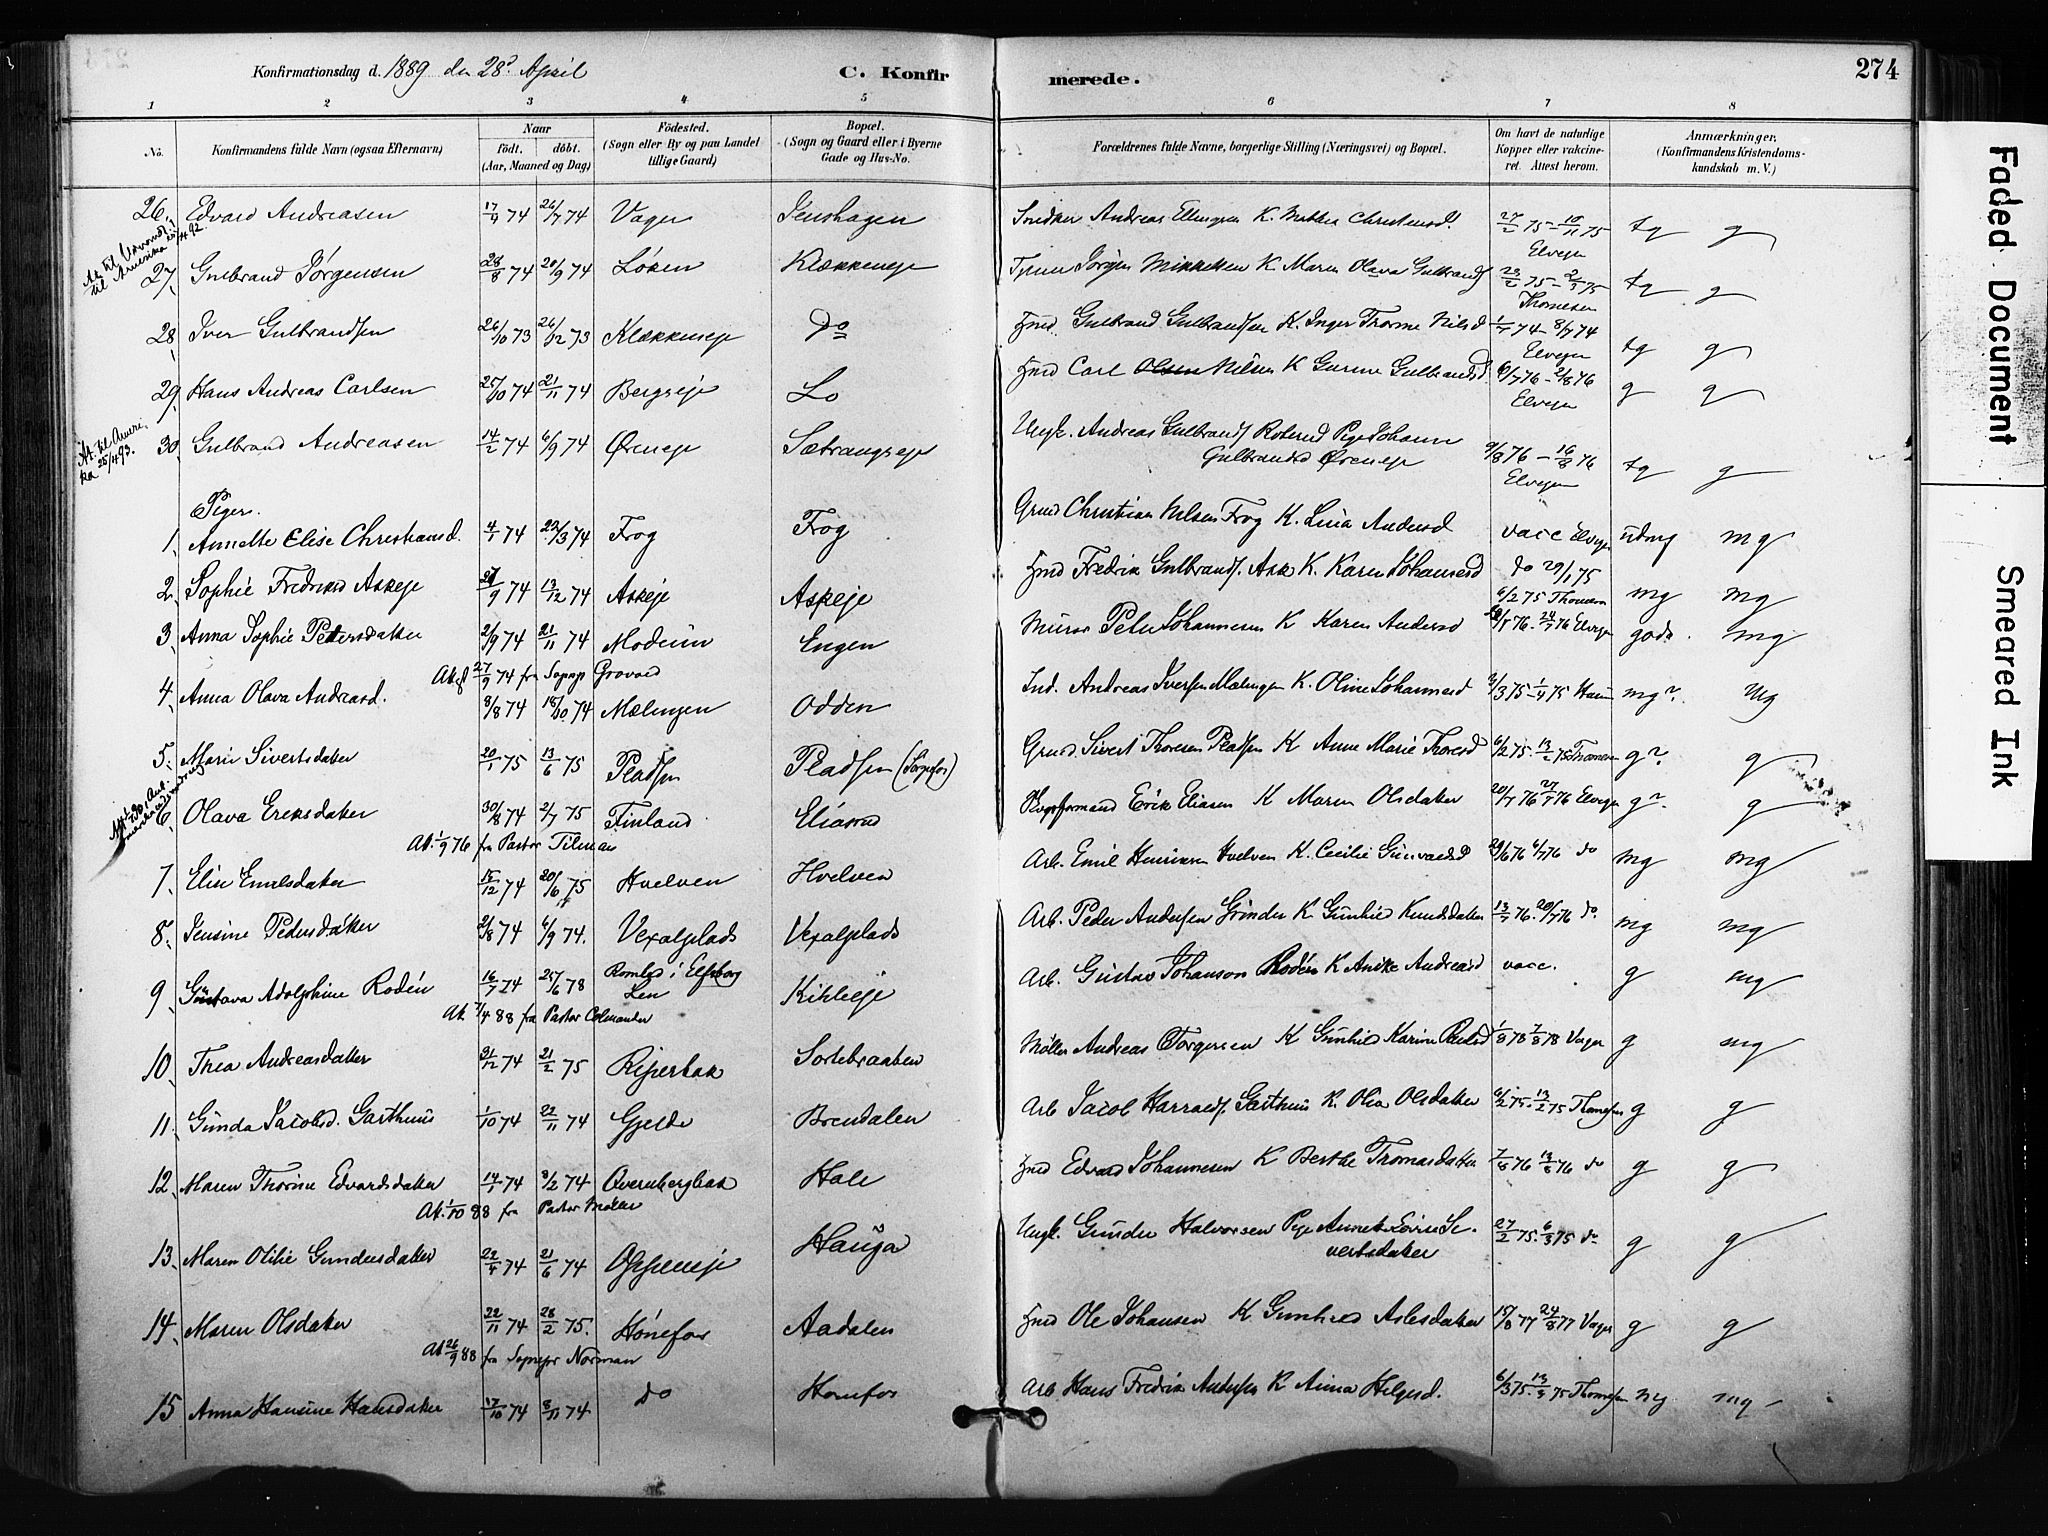 Konfirmationsdag d. 1889 den 28de April
C. Konfir
merede.
274
1 2 3 4 5 6 7 8
No. Konfirmandens fulde Navn (ogsaa Efternavn) Naar født. døbt. (Aar, Maaned og Dag) Fødested. (Sogn eller By og paa Landet tillige Gaard) Bopæl. (Sogn og Gaard eller i Byerne Gade og Hus-No.
Forældrenes fulde Navne, borgerlige Stilling (Næringsvei) og Bopæl. Om havt de naturlige Kopper eller vakcineret. Attest herom. Anmærkninger, (Konfirmandens Kristendomskundskab m. V.)
26. Edvard Andreasen 17/4 74 26/7 74 Vager Snedker Andreas K. Christensd. 27/2 75 – 10/11 75 Elvejen tg g
til Amerika
27. Gulbrand Jørgensen 28/8 74 20/9 74 Løken Klækkeneje Jørgen Mikkelsen K Maren Olava Gulbrands 23/2 75 – 2/3 75 Thomesen tg g
28. Iver Gulbrandsen 26/10 73 26/12 73 Klækkeneje Do Hmd Gulbrand Gulbrandsen K. Inger Thorine Nilsd 1/7 74 – 8/7 74 Elvejen tg g
29. Hans Andreas Carlsen 25/10 74 21/11 74 Bergseje Lo Hmd Carl Olsen Nilsen K Gurine Gulbrandsd. 6/7 76 – 2/8 76 Elvejen g g
30. Gulbrand Andreasen 14/2 74 6/9 74 Øreneje Sætrangseje Ungk. Andreas Gulbrands Roterud Pige Johanne Gulbrandsd Øreneje 9/8 76 – 16/8 76 Elvejen tg g
At. til Amerika 25/4 93.
Piger.
1. Annette Elise Christiansd. 4/1 74 22/3 74 Frog Frog Grmd Christian Nilsen Frog K. Lina Andersd vacc Elvejen udmg mg
2. Sophie Fredriksd Askeje 27/9 74 13/12 74 Askeje Askeje Hmd Fredrik Gulbrands. Ask K. Karen Johannesd do 29/1 75 mg mg
6/2 75 Thomesen
3. Anna Sophie Petersdatter 2/9 74 21/11 74 Modum Engen Murer Peter Johannesen K Karen Andersd 76 – 24/7 76 Elvejen godt. mg
27/9 74 fra Sognep Grovold
4. Anna Olava Andreasd. 8/8 74 18/10 74 Mælingen Odden Ind. Andreas Iversen Mælingen K. Oline Johannesd 3/3 75 – 1/4 75 mg? Mg
5. Marie Sivertsdatter 20/1 75 13/6 75 Pladsen Pladsen Grmd. Sivert Thoresen Pladsen K Anne Marie Thoresd 6/2 75. 13/2 75 Thomesen g? g
6. Olava Eriksdatter 30/8 74 2/7 75 Finland Eliasrud Erik Eliasen K Maren Olsdatter 20/7 76 27/7 76 Elvejen g? g
At. 1/9 76 fra Pastor Tilman
7. Elise Emilsdatter 15/12 74 20/6 75 Hvelven Hvelven Arb. Emil Henriksen Hvelven K. Cecilie Gunvaldsd 29/6 76 6/7 76 do mg mg
8. Jensine Pedersdatter 2/8 74 6/9 74. Vexalplads Vexalplads Arb. Peder Andersen Grinder K. Gunhild Knudsdatter 13/7 76. 20/7 76 do. mg mg
9. Gustava Adolphine Rodén 16/7 74 25/6 78 Romled i Elfsborg Len Kihleeje Arb. Gustav Johanson Rodén K Anike Andreasd vacc. g mg
At. 7/4 88 fra Pastor Colmander
10. Thea Andreasdatter 31/12 74 21/2 75 Ripperbak Sortebraaten Møller Andreas Torgersen K Gunhild Karine Paulsd 1/8 78 7/8 78 Vager g mg
11. Gunda Jacobsd. Garthus 1/10 74 22/11 74 Gjelde Brendalen Arb Jacob Haraldsen. Garthus K. Olia Olsdatter 6/2 75. 13/2 75 Thomesen g g
12. Maren Thorine Edvardsdatter 14/1 74 3/2 74 Qvernbergbak Hole Hmd Edvard Johannesen K Berthe Thomasdatter 7/8 76 13/8 76 do g g
At. 1/10 88 fra Pastor Møller
13. Maren Otilie Gundersdatter 22/4 74 21/6 74 Oppeneje Hauga Ungk. Gunder Halvorsen Pige Anne Lovise Sivertsdatter 27/2 75. 6/3 75 do g g
14. Maren Olsdatter 22/11 74 28/2 75. Hønefos Aadalen Hmd Ole Johansen K Gunhild Aslesdatter 15/8 77 24/8 77 Vager g g
At 26/9 88 fra Sognepr Norman
15 Anna Hansine Hansdatter 17/10 74 8/11 74 do Hønefos Arb Hans Fredrik Andersen K Anna Helgesd. 6/3 75. 13/3 75 Thomesen mg mg
Faded Document
Smeared Ink